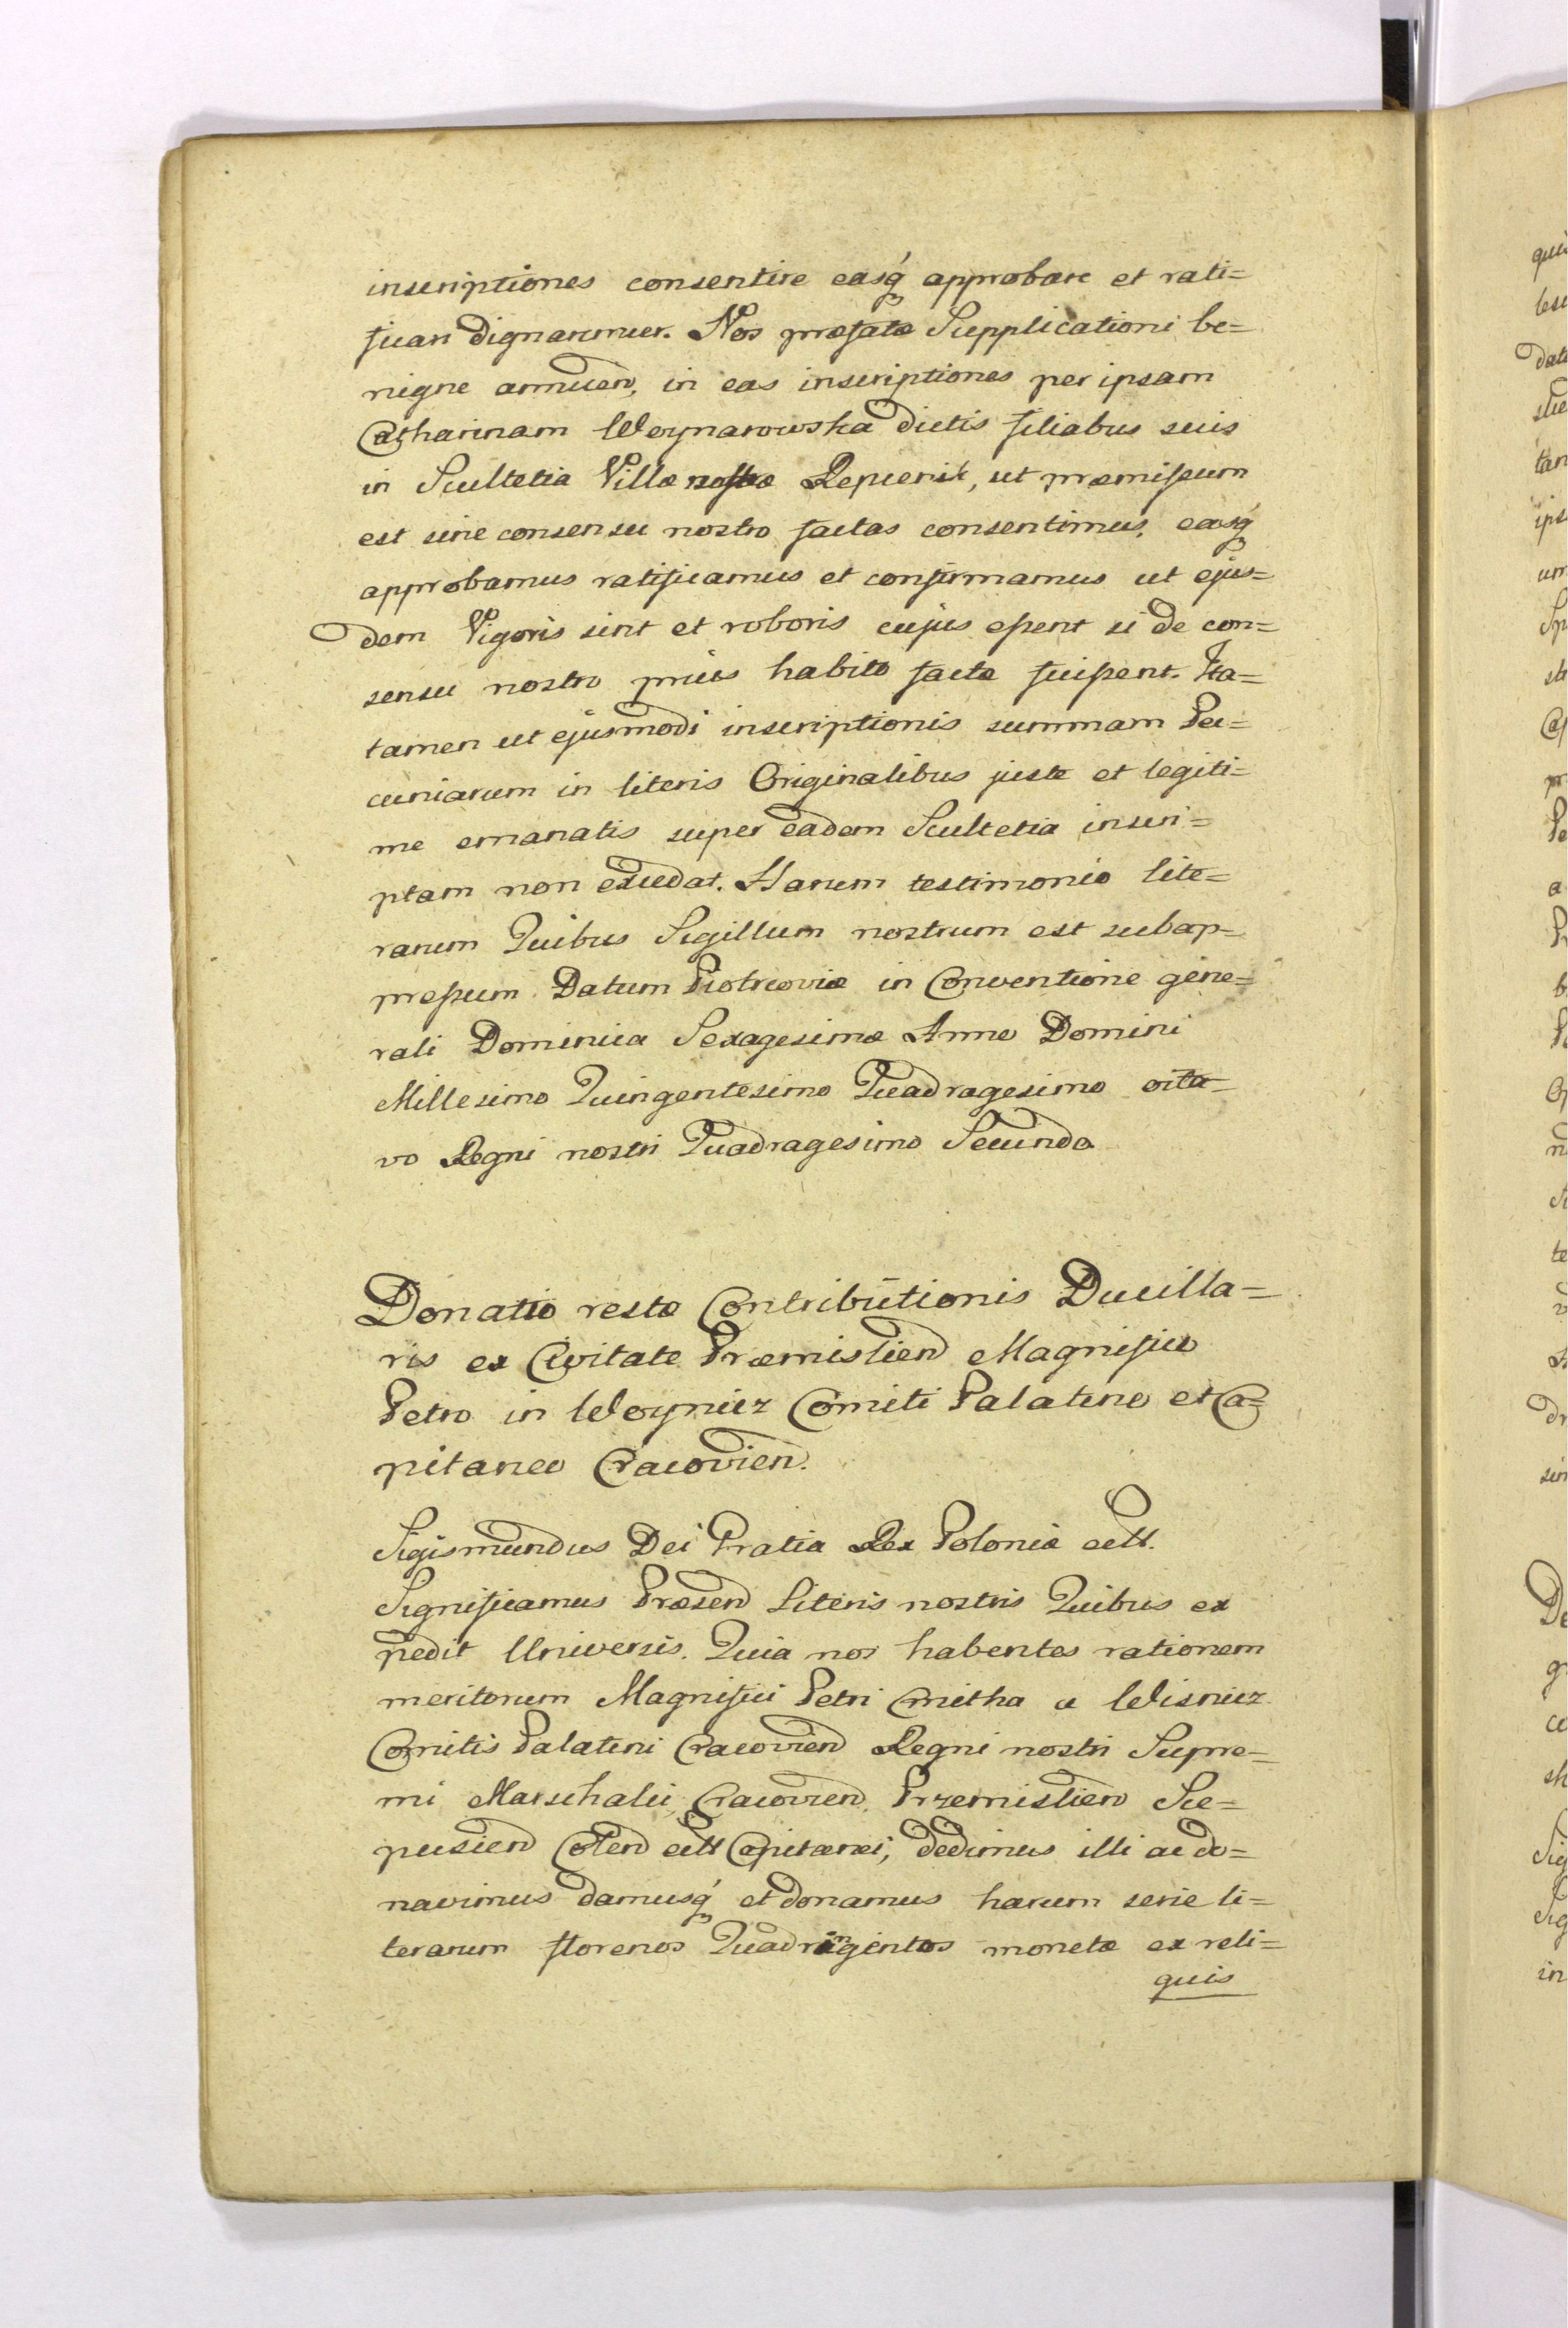 inscriptiones consentire easq́ approbare et rati=
ficari dignaremur. Nos præfatæ Supplicationi be=
nigne annuen, in eas inscriptiones per ipsam
Catharinam Woynarowska dictis filiabus suis
in Scultetia Villæ nostræ Repienik, ut præmissum
est sine consensu nostro factas consentimus, easq́
approbamus ratificamus et confirmamus ut ejus=
dem Vigoris sint et roboris cujus essent si de con=
sensu nostro prius habito factæ fuissent. Ita=
tamen ut ejusmodi inscriptionis summam Pe=
cuniarum in literis Originalibus juste et legiti=
me emanatis super eadem Scultetia inscri=
ptam non excedat. Harum testimonio lite=
rarum Quibus Sigillum nostrum est subap=
pressum. Datum Piotrcoviæ in Conventione gene=
rali Dominica Sexagesimæ Anno Domini
Millesimo Quingentesimo Quadragesimo octa=
vo Regni nostri Quadragesimo Secundo
Donatio restæ Contributionis Ducilla=
ris ex Civitate Præmislien Magnifico
Petro in Woynicz Comiti Palatino et Ca=
pitaneo Cracovien.
Sigismundus Dei Gratia Rex Poloniæ ett.
Significamus Præsen Literis nostris Quibus ex
pedit Universis. Quia nos habentes rationem
meritorum Magnifici Petri Cmitha a Wisnicz
Comitis Palatini Cracovien Regni nostri Supre=
mi Marschalci, Cracovien, Przemislien Sce=
pusien Colen ett Capitanei, dedimus illi ac do=
navimus damusq́ et donamus harum serie li=
terarum florenos Quadringentos monetæ ex reli=
quis